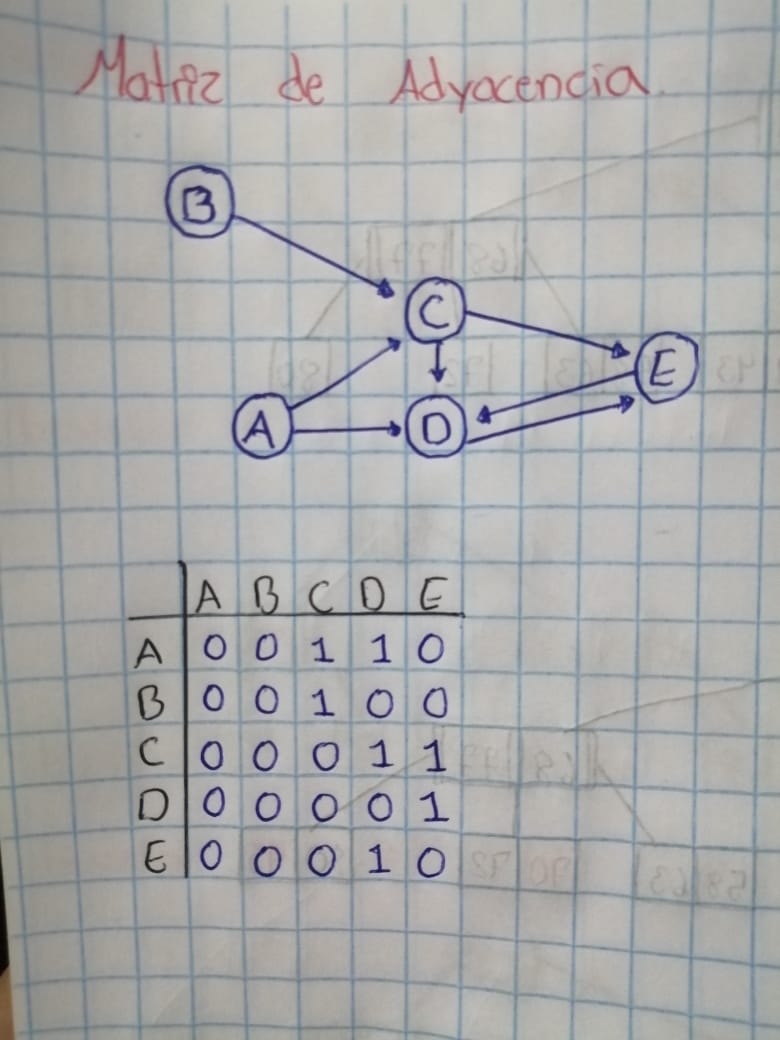 Matriz de Adyacencia
B
C
E
A
D
A B C D E
A 0 0 1 1 0
B 0 0 1 0 0
C 0 0 0 1 1
D 0 0 0 0 1
E 0 0 0 1 0